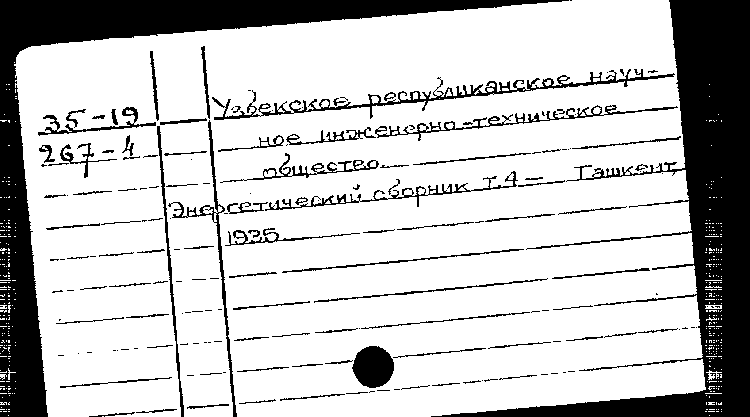 35-19
267-4
Узбекское республиканское науч-
ное инженерно-техническое
общество.
Энергетический сборник т.4 — Ташкент,
1935